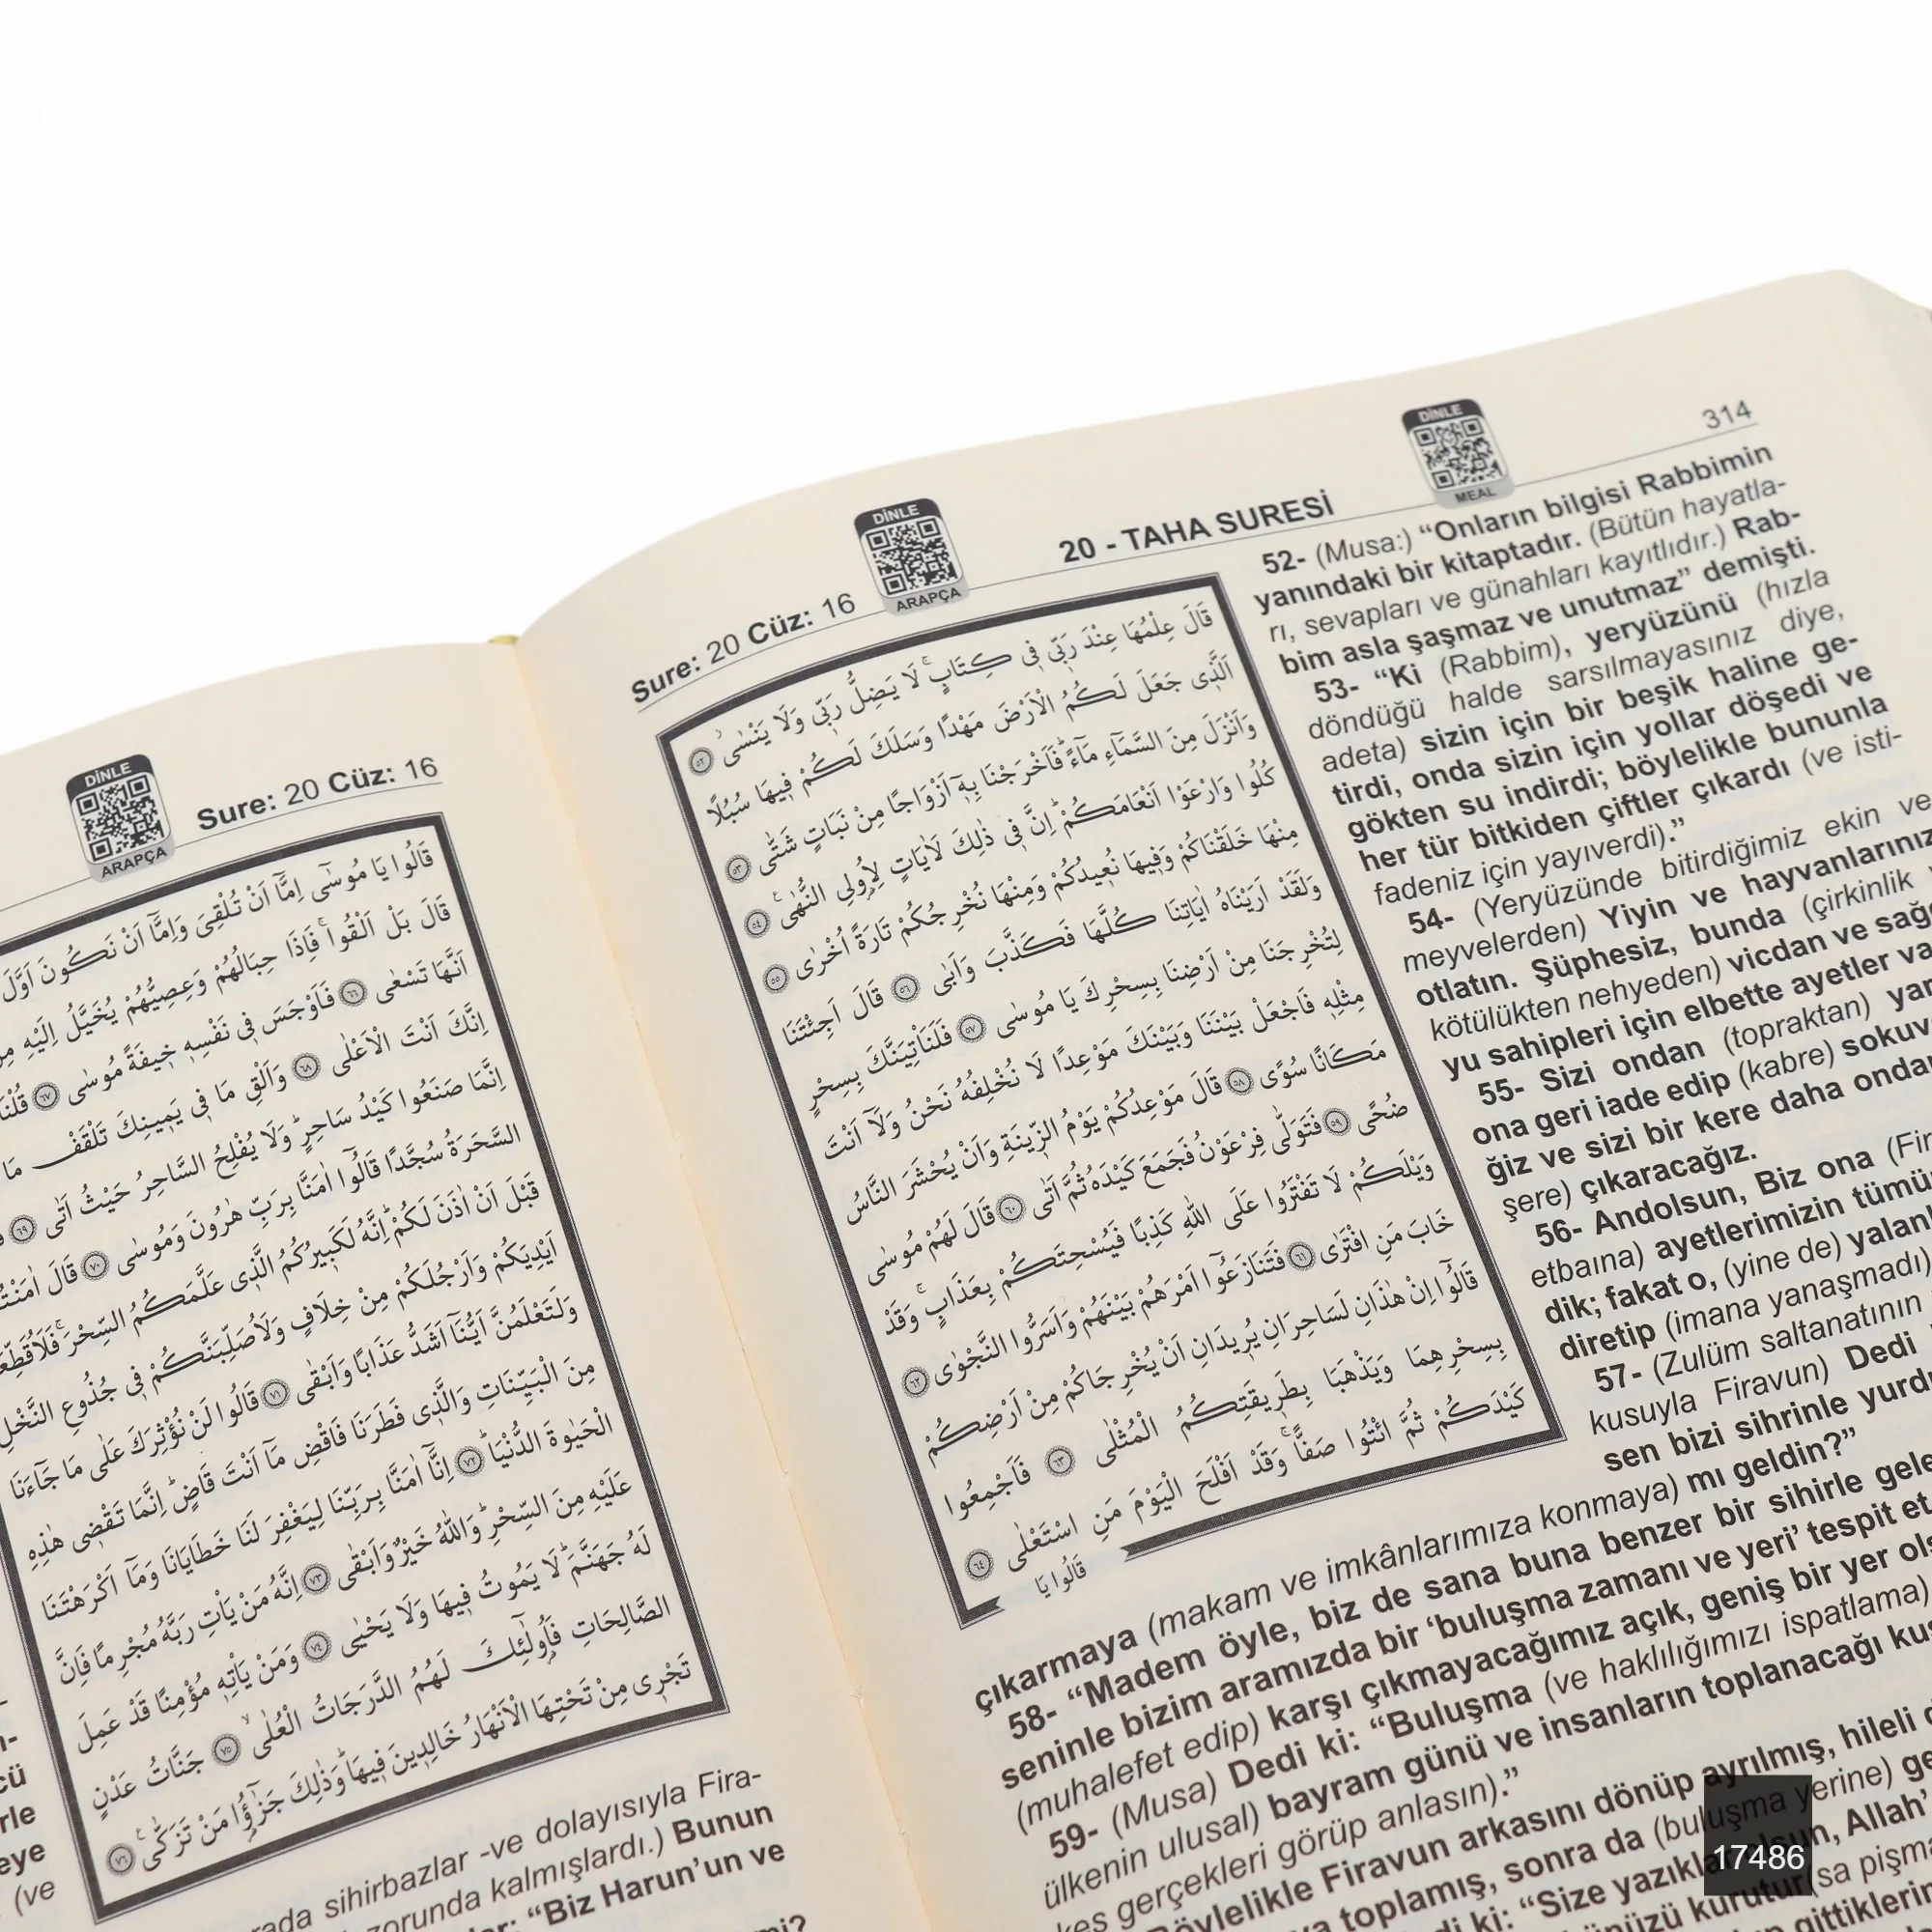 DİNLE
ARAPÇA
Sure: 20 Cüz: 16
قَالُوا يَا مُوسٰٓى اِمَّٓا اَنْ تُلْقِيَ وَاِمَّٓا اَنْ نَكُونَ اَوَّلَ
قَالَ بَلْ اَلْقُواۚ فَاِذَا حِبَالُهُمْ وَعِصِيُّهُمْ يُخَيَّلُ اِلَيْهِ مِنْ
اَنَّهَا تَسْعٰى ٦٦ فَاَوْجَسَ فٖى نَفْسِهٖ خٖيفَةً مُوسٰى ٦٧ قُلْنَا
اِنَّكَ اَنْتَ الْاَعْلٰى ٦٨ وَاَلْقِ مَا فٖى يَمٖينِكَ تَلْقَفْ مَا
اِنَّمَا صَنَعُوا كَيْدُ سَاحِرٍؕ وَلَا يُفْلِحُ السَّاحِرُ حَيْثُ اَتٰى ٦٩
السَّحَرَةُ سُجَّدًا قَالُٓوا اٰمَنَّا بِرَبِّ هٰرُونَ وَمُوسٰى ٧٠ قَالَ اٰمَنْتُمْ
قَبْلَ اَنْ اٰذَنَ لَكُمْؕ اِنَّهُ لَكَبٖيرُكُمُ الَّذٖى عَلَّمَكُمُ السِّحْرَۚ فَلَاُقَطِّعَنَّ
اَيْدِيَكُمْ وَاَرْجُلَكُمْ مِنْ خِلَافٍ وَلَاُصَلِّبَنَّكُمْ فٖى جُذُوعِ النَّخْلِ
وَلَتَعْلَمُنَّ اَيُّنَٓا اَشَدُّ عَذَابًا وَاَبْقٰى ٧١ قَالُوا لَنْ نُؤْثِرَكَ عَلٰى مَا جَٓاءَنَا
مِنَ الْبَيِّنَاتِ وَالَّذٖى فَطَرَنَا فَاقْضِ مَٓا اَنْتَ قَاضٍؕ اِنَّمَا تَقْضٖى هٰذِهِ
الْحَيٰوةَ الدُّنْيَاؕ ٧٢ اِنَّٓا اٰمَنَّا بِرَبِّنَا لِيَغْفِرَ لَنَا خَطَايَانَا وَمَٓا اَكْرَهْتَنَا
عَلَيْهِ مِنَ السِّحْرِؕ وَاللّٰهُ خَيْرٌ وَاَبْقٰى ٧٣ اِنَّهُ مَنْ يَأْتِ رَبَّهُ مُجْرِمًا فَاِنَّ
لَهُ جَهَنَّمَؕ لَا يَمُوتُ فٖيهَا وَلَا يَحْيٰى ٧٤ وَمَنْ يَأْتِهٖ مُؤْمِنًا قَدْ عَمِلَ
الصَّالِحَاتِ فَاُو۬لٰٓئِكَ لَهُمُ الدَّرَجَاتُ الْعُلٰىۙ ٧٥ جَنَّاتُ عَدْنٍ
تَجْرٖى مِنْ تَحْتِهَا الْاَنْهَارُ خَالِدٖينَ فٖيهَاؕ وَذٰلِكَ جَزٰٓؤُا مَنْ تَزَكّٰىࣖ ٧٦
rada sihirbazlar -ve dolayısıyla Fira-
zorunda kalmışlardı.) Bunun
“Biz Harun’un ve
Sure: 20 Cüz: 16
DİNLE
ARAPÇA
20 - TAHA SURESİ
DİNLE
MEAL
314
قَالَ عِلْمُهَا عِنْدَ رَبّٖى فٖى كِتَابٍۚ لَا يَضِلُّ رَبّٖى وَلَا يَنْسٰىۙ ٥٢
اَلَّذٖى جَعَلَ لَكُمُ الْاَرْضَ مَهْدًا وَسَلَكَ لَكُمْ فٖيهَا سُبُلًا
وَاَنْزَلَ مِنَ السَّمَٓاءِ مَٓاءًؕ فَاَخْرَجْنَا بِهٖٓ اَزْوَاجًا مِنْ نَبَاتٍ شَتّٰى ٥٣
كُلُوا وَارْعَوْا اَنْعَامَكُمْؕ اِنَّ فٖى ذٰلِكَ لَاٰيَاتٍ لِاُو۬لِى النُّهٰىࣖ ٥٤
مِنْهَا خَلَقْنَاكُمْ وَفٖيهَا نُعٖيدُكُمْ وَمِنْهَا نُخْرِجُكُمْ تَارَةً اُخْرٰى ٥٥
وَلَقَدْ اَرَيْنَاهُ اٰيَاتِنَا كُلَّهَا فَكَذَّبَ وَاَبٰى ٥٦ قَالَ اَجِئْتَنَا
لِتُخْرِجَنَا مِنْ اَرْضِنَا بِسِحْرِكَ يَا مُوسٰى ٥٧ فَلَنَأْتِيَنَّكَ بِسِحْرٍ
مِثْلِهٖ فَاجْعَلْ بَيْنَنَا وَبَيْنَكَ مَوْعِدًا لَا نُخْلِفُهُ نَحْنُ وَلَٓا اَنْتَ
مَكَانًا سُوًى ٥٨ قَالَ مَوْعِدُكُمْ يَوْمُ الزّٖينَةِ وَاَنْ يُحْشَرَ النَّاسُ
ضُحًى ٥٩ فَتَوَلّٰى فِرْعَوْنُ فَجَمَعَ كَيْدَهُ ثُمَّ اَتٰى ٦٠ قَالَ لَهُمْ مُوسٰى
وَيْلَكُمْ لَا تَفْتَرُوا عَلَى اللّٰهِ كَذِبًا فَيُسْحِتَكُمْ بِعَذَابٍۚ وَقَدْ
خَابَ مَنِ افْتَرٰى ٦١ فَتَنَازَعُٓوا اَمْرَهُمْ بَيْنَهُمْ وَاَسَرُّوا النَّجْوٰى ٦٢
قَالُٓوا اِنْ هٰذَانِ لَسَاحِرَانِ يُرٖيدَانِ اَنْ يُخْرِجَاكُمْ مِنْ اَرْضِكُمْ
بِسِحْرِهِمَا وَيَذْهَبَا بِطَرٖيقَتِكُمُ الْمُثْلٰى ٦٣ فَاَجْمِعُوا
كَيْدَكُمْ ثُمَّ ائْتُوا صَفًّاۚ وَقَدْ اَفْلَحَ الْيَوْمَ مَنِ اسْتَعْلٰى ٦٤
قَالُوا يَا
52- (Musa:) “Onların bilgisi Rabbimin
yanındaki bir kitaptadır. (Bütün hayatla-
rı, sevapları ve günahları kayıtlıdır.) Rab-
bim asla şaşmaz ve unutmaz” demişti.
53- “Ki (Rabbim), yeryüzünü (hızla
döndüğü halde sarsılmayasınız diye,
adeta) sizin için bir beşik haline ge-
tirdi, onda sizin için yollar döşedi ve
gökten su indirdi; böylelikle bununla
her tür bitkiden çiftler çıkardı (ve isti-
fadeniz için yayıverdi).”
54- (Yeryüzünde bitirdiğimiz ekin ve
meyvelerden) Yiyin ve hayvanlarınız
otlatın. Şüphesiz, bunda (çirkinlik
kötülükten nehyeden) vicdan ve sağ
yu sahipleri için elbette ayetler va
55- Sizi ondan (topraktan) yar
ona geri iade edip (kabre) sokuv
ğiz ve sizi bir kere daha ondan
şere) çıkaracağız.
56- Andolsun, Biz ona (Fir
etbaına) ayetlerimizin tümü
dik; fakat o, (yine de) yalanl
diretip (imana yanaşmadı)
57- (Zulüm saltanatının
kusuyla Firavun) Dedi
sen bizi sihrinle yurd
çıkarmaya (makam ve imkânlarımıza konmaya) mı geldin?”
58- “Madem öyle, biz de sana buna benzer bir sihirle gele
seninle bizim aramızda bir ‘buluşma zamanı ve yeri’ tespit et
(muhalefet edip) karşı çıkmayacağımız açık, geniş bir yer ols
59- (Musa) Dedi ki: “Buluşma (ve haklılığımızı ispatlama)
ülkenin ulusal) bayram günü ve insanların toplanacağı kuş
kes gerçekleri görüp anlasın).”
Böylelikle Firavun arkasını dönüp ayrılmış, hileli
toplamış, sonra da (buluşma yerine) ge
ki: “Size yazıklar olsun, Allah’
17486